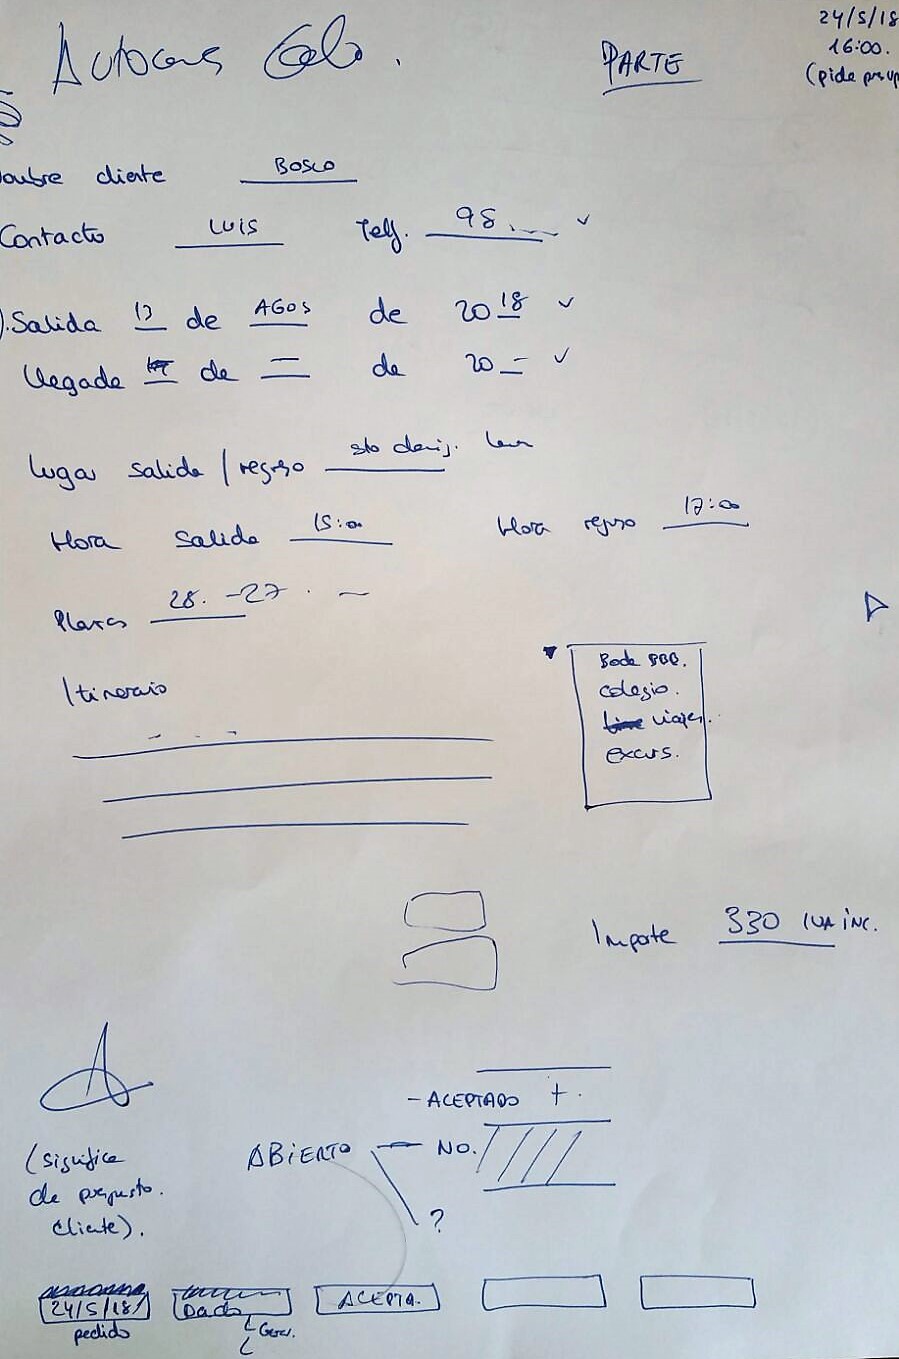 Autocares
PARTE
24/5/18
16:00.
(pide presup
nombre cliente BOSCO
Contacto LUIS Telf. 98
Salida 13 de AGOS de 2018
llegada de de 20
lugar salida / regreso sto
Hora salida 15:00 Hora regreso 17:00
Plazas 28. - 27
Itinerario
Boda
colegio.
viajes.
excurs.
Importe 330 IVA inc.
(significa
de presupuesto.
cliente).
- ACEPTADO +.
ABIERTO NO.
?
24/5/18 Dado ACEPTA.
pedido